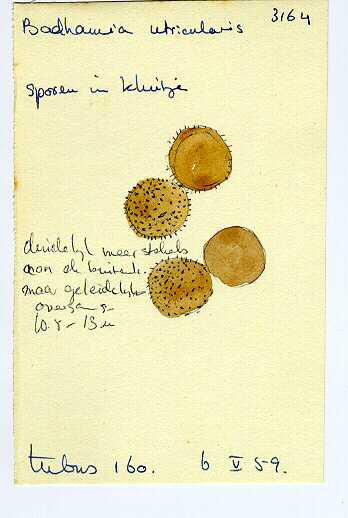 3164
Badhamia utricularis
sporen in kluitje
duidelijk meer stekels
aan de buitenk.
maar geleidelijke
overgang
10.8 - 13 u
tubus 160. 6 V 59.